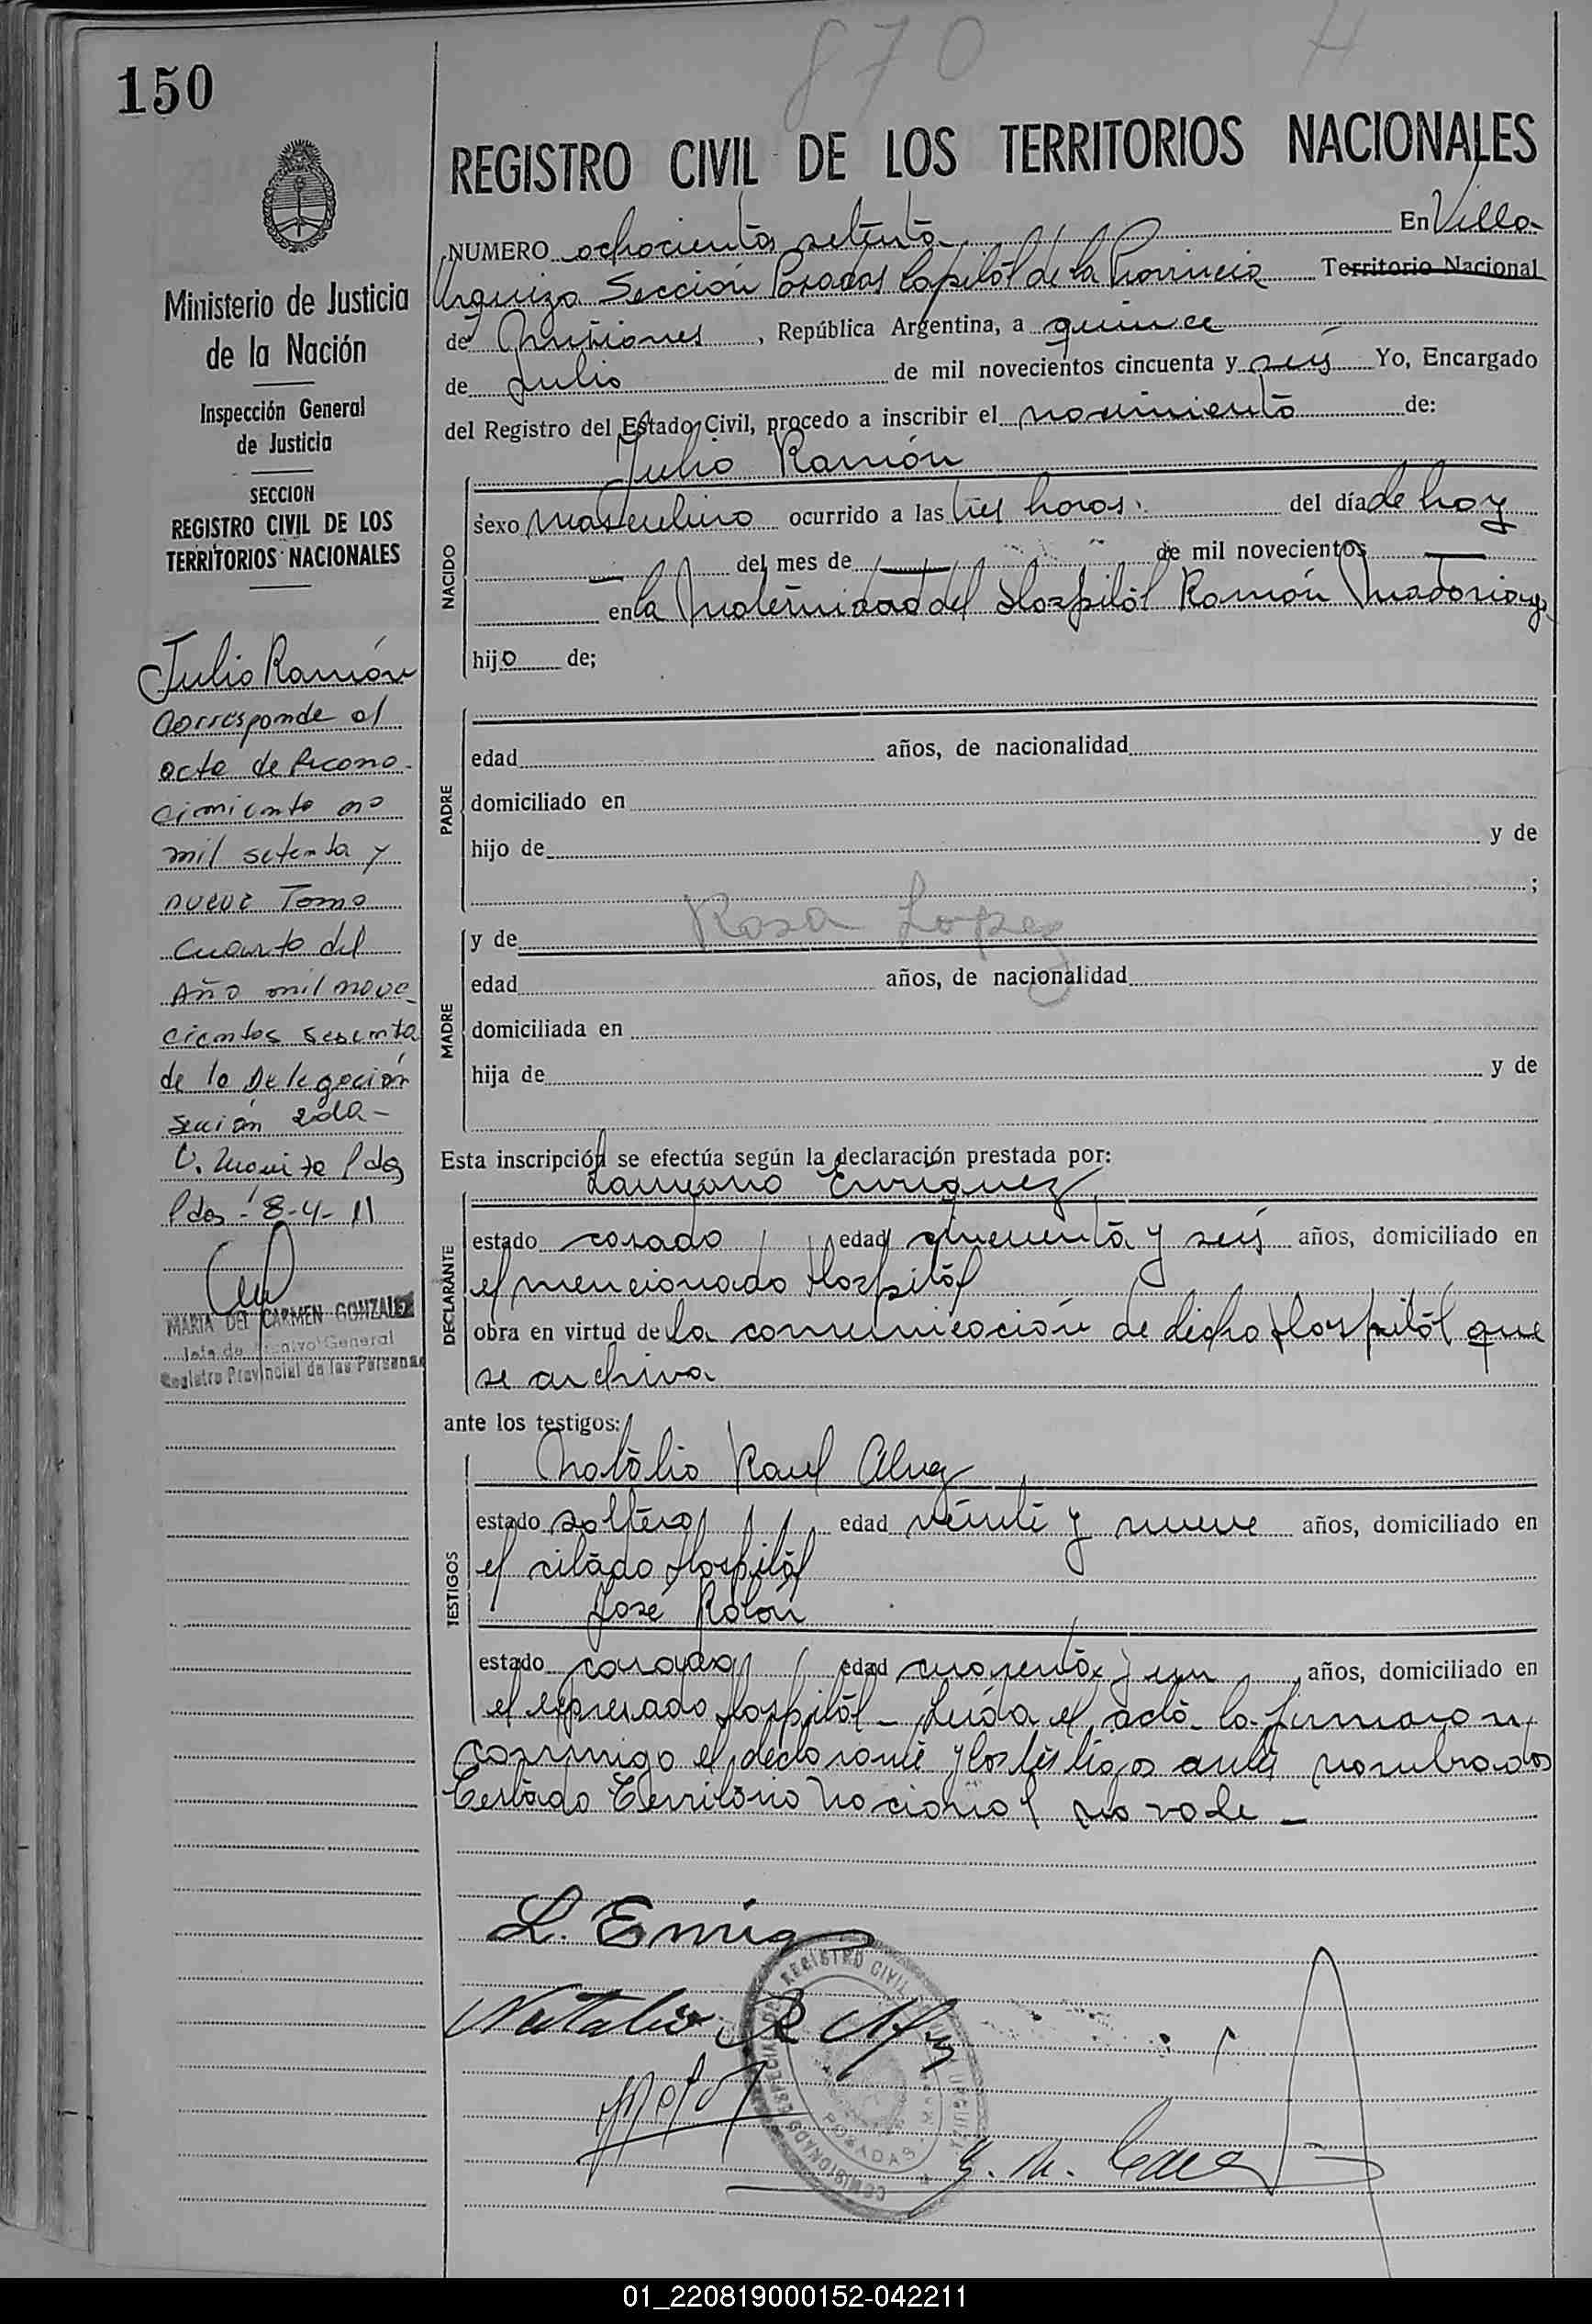 870
4
150
REGISTRO CIVIL DE LOS TERRITORIOS NACIONALES
NUMERO ochocientos setenta En Villa
Urquiza Sección Posadas Capital de la Provincia Territorio Nacional
de Misiones, República Argentina, a quince
de Julio de mil novecientos cincuenta y seis Yo, Encargado
del Registro del Estado Civil, procedo a inscribir el nacimiento de:
Julio Ramón
NACIDO
sexo masculino ocurrido a las tres horas. del día de hoy
— del mes de — de mil novecientos —
en la Maternidad del Hospital Ramón Madariaga
hijo de;
PADRE
edad años, de nacionalidad
domiciliado en
hijo de y de
;
MADRE
y de Rosa Lopez
edad años, de nacionalidad
domiciliada en
hija de y de
Esta inscripción se efectúa según la declaración prestada por:
Enriquez
DECLARANTE
estado casado edad cincuenta y seis años, domiciliado en
el mencionado Hospital
obra en virtud de la comunicación de dicho Hospital que
se archiva
ante los testigos:
Natalio Raul Alvez
TESTIGOS
estado soltero edad veinte y nueve años, domiciliado en
el citado Hospital
José Rolón
estado casado edad cuarenta y un años, domiciliado en
el expresado Hospital - Leída el acta la firmaron
conmigo el declarante y los testigos antes nombrados
Testado Territorio Nacional no vale -
L. Enriq
Natalio R Alvez
REGISTRO CIVIL
POSADAS
Ministerio de Justicia
de la Nación
Inspección General
de Justicia
SECCION
REGISTRO CIVIL DE LOS
TERRITORIOS NACIONALES
Julio Ramón
Corresponde al
acta de Recono-
cimiento nº
mil setenta y
nueve Tomo
Cuarto del
Año mil nove-
cientos sesenta
de la Delegación
sección 2da -
V. Urquiza Pdas
Pdas - 8-4-11
MARIA DEL CARMEN GONZALEZ
Jefa de Archivo General
Registro Provincial de las Personas
01_220819000152-042211